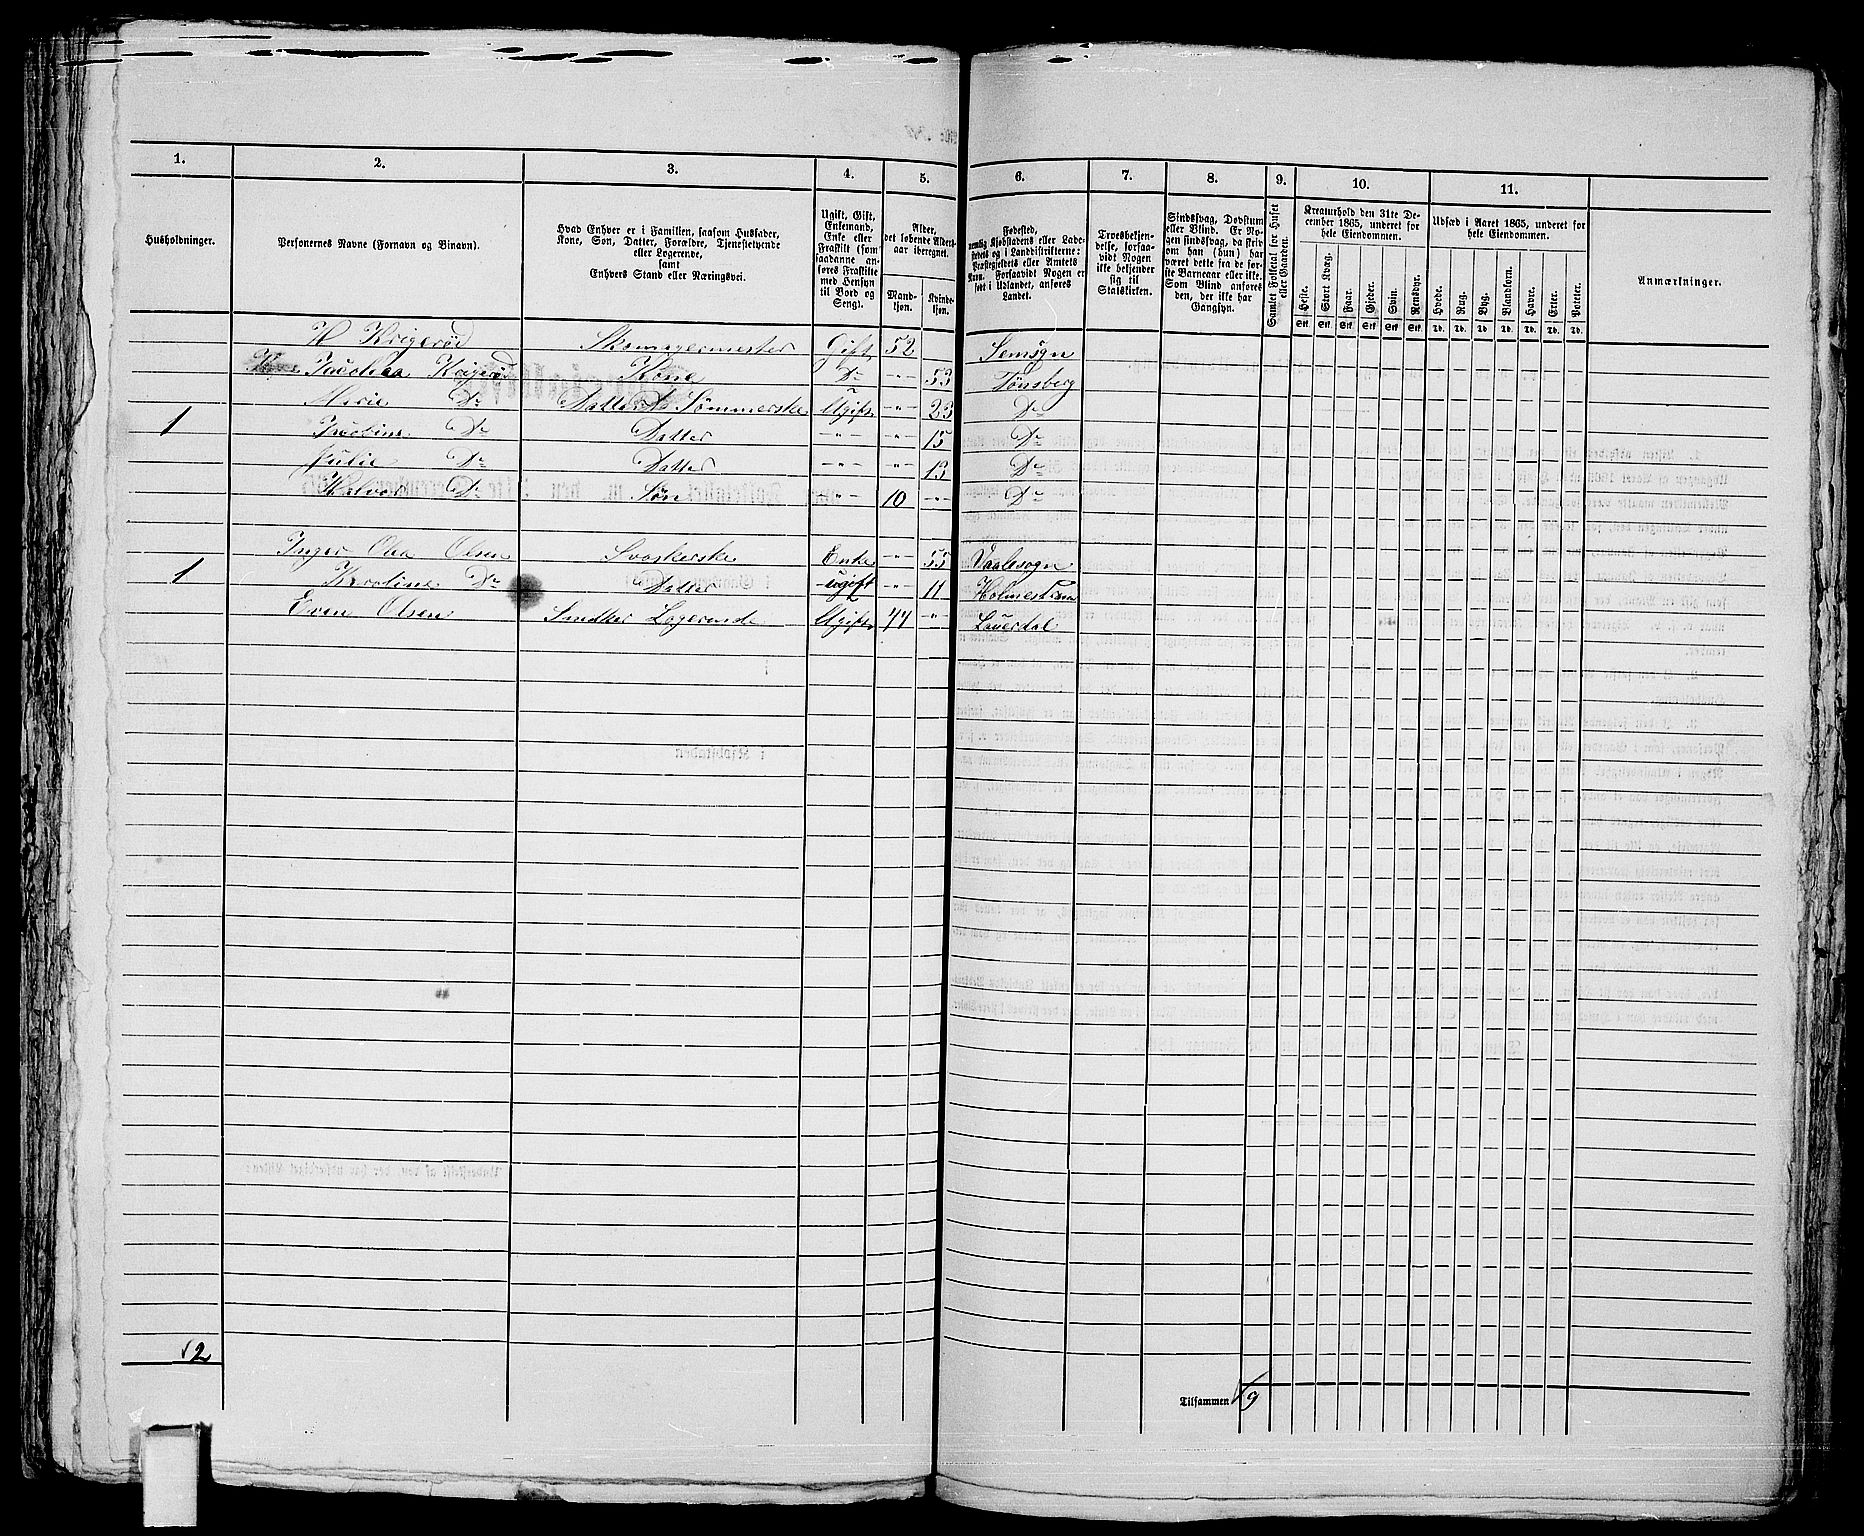 1. 2. 3. 4. 5. 6. 7. 8. 9. 10. 11.
Husholdninger.
Personernes Navne (Fornavn og Binavn).
Hvad Enhver er i Familien, saasom Husfader,
Kone, Søn, Datter, Forældre, Tjenestetyende
eller Logerende,
samt
Enhvers Stand eller Næringsvei.
Ugift, Gift,
Enkemand,
Enke eller
Fraskilt (som
saadanne an-
føres Fraskilte
med Hensyn
til Bord og
Seng).
Alder,
det løbende Alders-
aar iberegnet.
Mand-
kjøn.
Kvinde-
kjøn.
Fødested,
nemlig Kjøbstadens eller Lade-
stedets og i Landdistrikterne:
Præstegjeldets eller Amtets
Navn. Forsaavidt Nogen er
født i Udlandet, anføres
Landet.
Troesbekjen-
delse, forsaa-
vidt Nogen
ikke bekjender
sig til
Statskirken.
Sindssvag, Døvstum
eller Blind. Er No-
gen sindssvag, da skriv
om han (hun) har
været dette fra de før-
ste Barneaar eller ikke.
Som Blind anføres
den, der ikke har
Gangsyn.
Samlet Folketal for Huset
eller Gaarden.
Kreaturhold den 31te De-
cember 1865, underet for
hele Eiendommen.
Heste. Stort Kvæg. Faar. Gjeder. Svin. Rensdyr.
Stk. Stk. Stk. Stk. Stk. Stk.
Udsæd i Aaret 1865, underet for
hele Eiendommen.
Hvede. Rug. Byg. Blandkorn. Havre. Erter. Poteter.
Td. Td. Td. Td. Td. Td. Td.
Anmærkninger.
H Krigerød Skomagermester Gift 52 Semsogn
Krigerød Kone Do -"- 53 Tønsberg
Marie Do Datter Sømmerske Ugift -"- 23 Do
1 Jacobine Do Datter -"- -"- 15 Do
Julie Do Datter -"- -"- 13 Do
Halvor Do Søn -"- 10 -"- Do
Inger Olea Olsen Enke -"- 55 Vaalesogn
1 Karoline Do Datter ugift -"- 11 Holmestrand
Even Olsen Logerende Ugift 44 -"-
2
Tilsammen 9